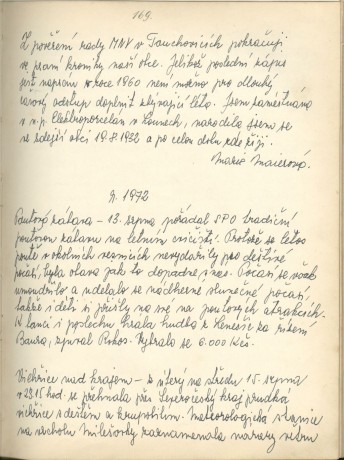 169.
Z pověření rady MNV v Touchovicích pokračuji
ve psaní kroniky naší obce. Jelikož poslední zápis
jest napsán v roce 1960 není možno pro dlouhý
časový odstup doplnit zbývající léta. Jsem zaměstnána
v n.p. Elektroporcelan v Lounech, narodila jsem se
ve zdejší obci 19.8.1932 a po celou dobu zde žiji.
Marie Maierová.
R. 1972
Pouťová zábava - 13. srpna pořádal SPO tradiční
pouťovou zábavu na letním cvičišti. Protože se letos
poutě v okolních vesnicích nevydařily pro deštivé
počasí, byla obava jak to dopadne u nás. Počasí se však
umoudřilo a udělalo se nádherné slunečné počasí,
takže i děti si přišly na své na pouťových atrakcích.
K tanci i poslechu hrála hudba zEneše za řízení
Baura, zpíval Rokos. Vybralo se 6.000 Kčs.
Vichřice nad krajem - z úterý na středu 15. srpna
v 23.15 hod. se přehnala přes Severočeský kraj prudká
vichřice s deštěm a krupobitím. Meteorologická stanice
na vrcholu Milešovky zaznamenala nárazy větru